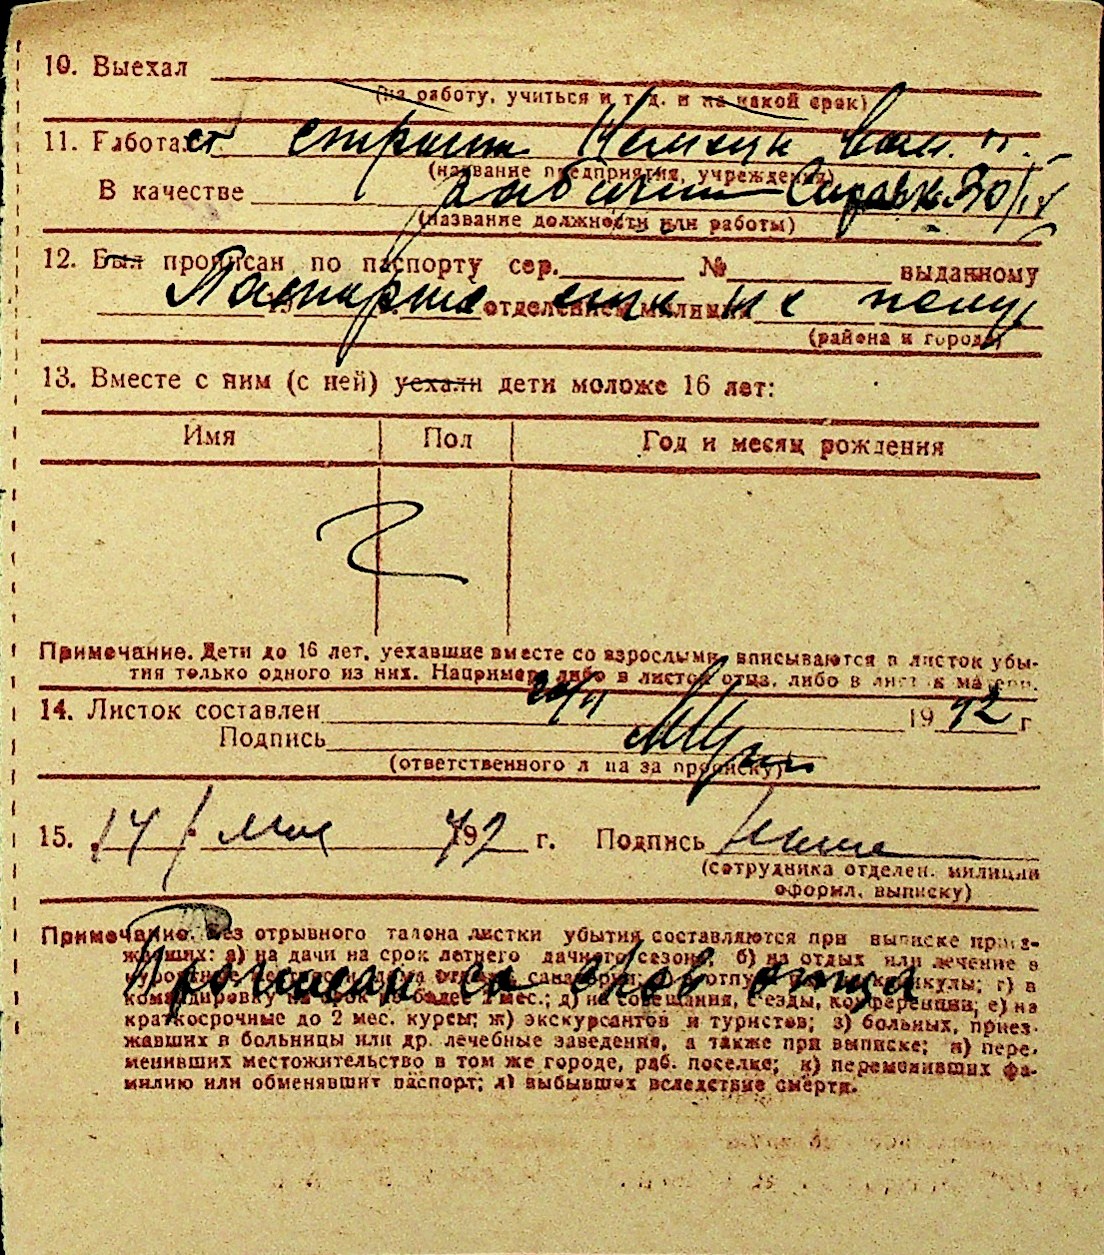 10. Выехал
(на работу, учиться и т. д. и на какой срок)
11. Работает
(название предприятия, учреждения)
В качестве рабочий Справк. 30/IV
(название должности или работы)
12. Был прописан по паспорту сер. № выданному
Паспорта еще не получ
19 г. отделением милиции
(района и города)
13. Вместе с ним (с ней) уехали дети моложе 16 лет:
Имя Пол Год и месяц рождения
Примечание. Дети до 16 лет, уехавшие вместе со взрослыми, вписываются в листок убы-
тия только одного из них. Например, либо в листок отца, либо в листок матери.
14. Листок составлен 1942 г
Подпись
(ответственного лица за прописку)
15. 14 / мая 1942 г. Подпись
(сотрудника отделен. милиции
оформл. выписку)
Примечание. Без отрывного талона листки убытия составляются при выписке приез-
жавших: а) на дачи на срок летнего дачного сезона; б) на отдых или лечение в
Прописан со слов отца
командировку на срок не более 2 мес.; д) на совещания, съезды, конференции; е) на
краткосрочные до 2 мес. курсы; ж) экскурсантов и туристов; з) больных, приез-
жавших в больницы или др. лечебные заведения, а также при выписке; и) пере-
менивших местожительство в том же городе, раб. поселке; к) переменивших фа-
милию или обменявших паспорт; л) выбывших вследствие смерти.